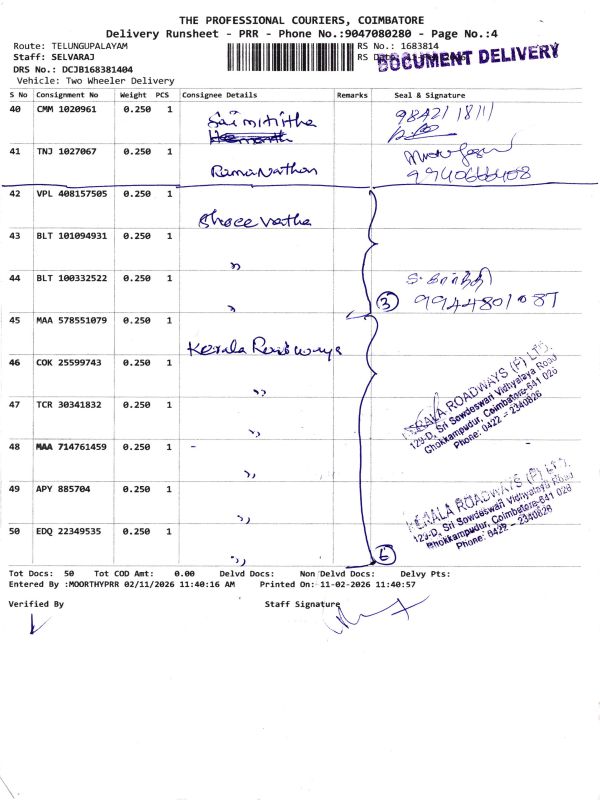 THE PROFESSIONAL COURIERS, COIMBATORE
Delivery Runsheet - PRR - Phone No.:9047080280 - Page No.:4
Route: TELUNGUPALAYAM RS No.: 1683814
Staff: SELVARAJ RS D
DOCUMENT DELIVERY
DRS No.: DCJB168381404
Vehicle: Two Wheeler Delivery
S No Consignment No Weight PCS Consignee Details Remarks Seal & Signature
40 CMM 1020961 0.250 1 98421 18111
41 TNJ 1027067 0.250 1 Ramanathan 9940666408
42 VPL 408157505 0.250 1
43 BLT 101094931 0.250 1 "
44 BLT 100332522 0.250 1 " 3 9944801087
45 MAA 578551079 0.250 1 Kerala Roadways
46 COK 25599743 0.250 1 "
47 TCR 30341832 0.250 1 "
KERALA ROADWAYS (P) LTD.
129-D, Sri Sowdeswari Vidhyalaya Road
Chokkampudur, Coimbatore-641 026
Phone: 0422 - 2340826
48 MAA 714761459 0.250 1 - "
49 APY 885704 0.250 1 "
50 EDQ 22349535 0.250 1 " 6
KERALA ROADWAYS (P) LTD.
129-D, Sri Sowdeswari Vidhyalaya Road
Chokkampudur, Coimbatore-641 026
Phone: 0422 - 2340826
Tot Docs: 50 Tot COD Amt: 0.00 Delvd Docs: Non Delvd Docs: Delvy Pts:
Entered By :MOORTHYPRR 02/11/2026 11:40:16 AM Printed On: 11-02-2026 11:40:57
Verified By Staff Signature